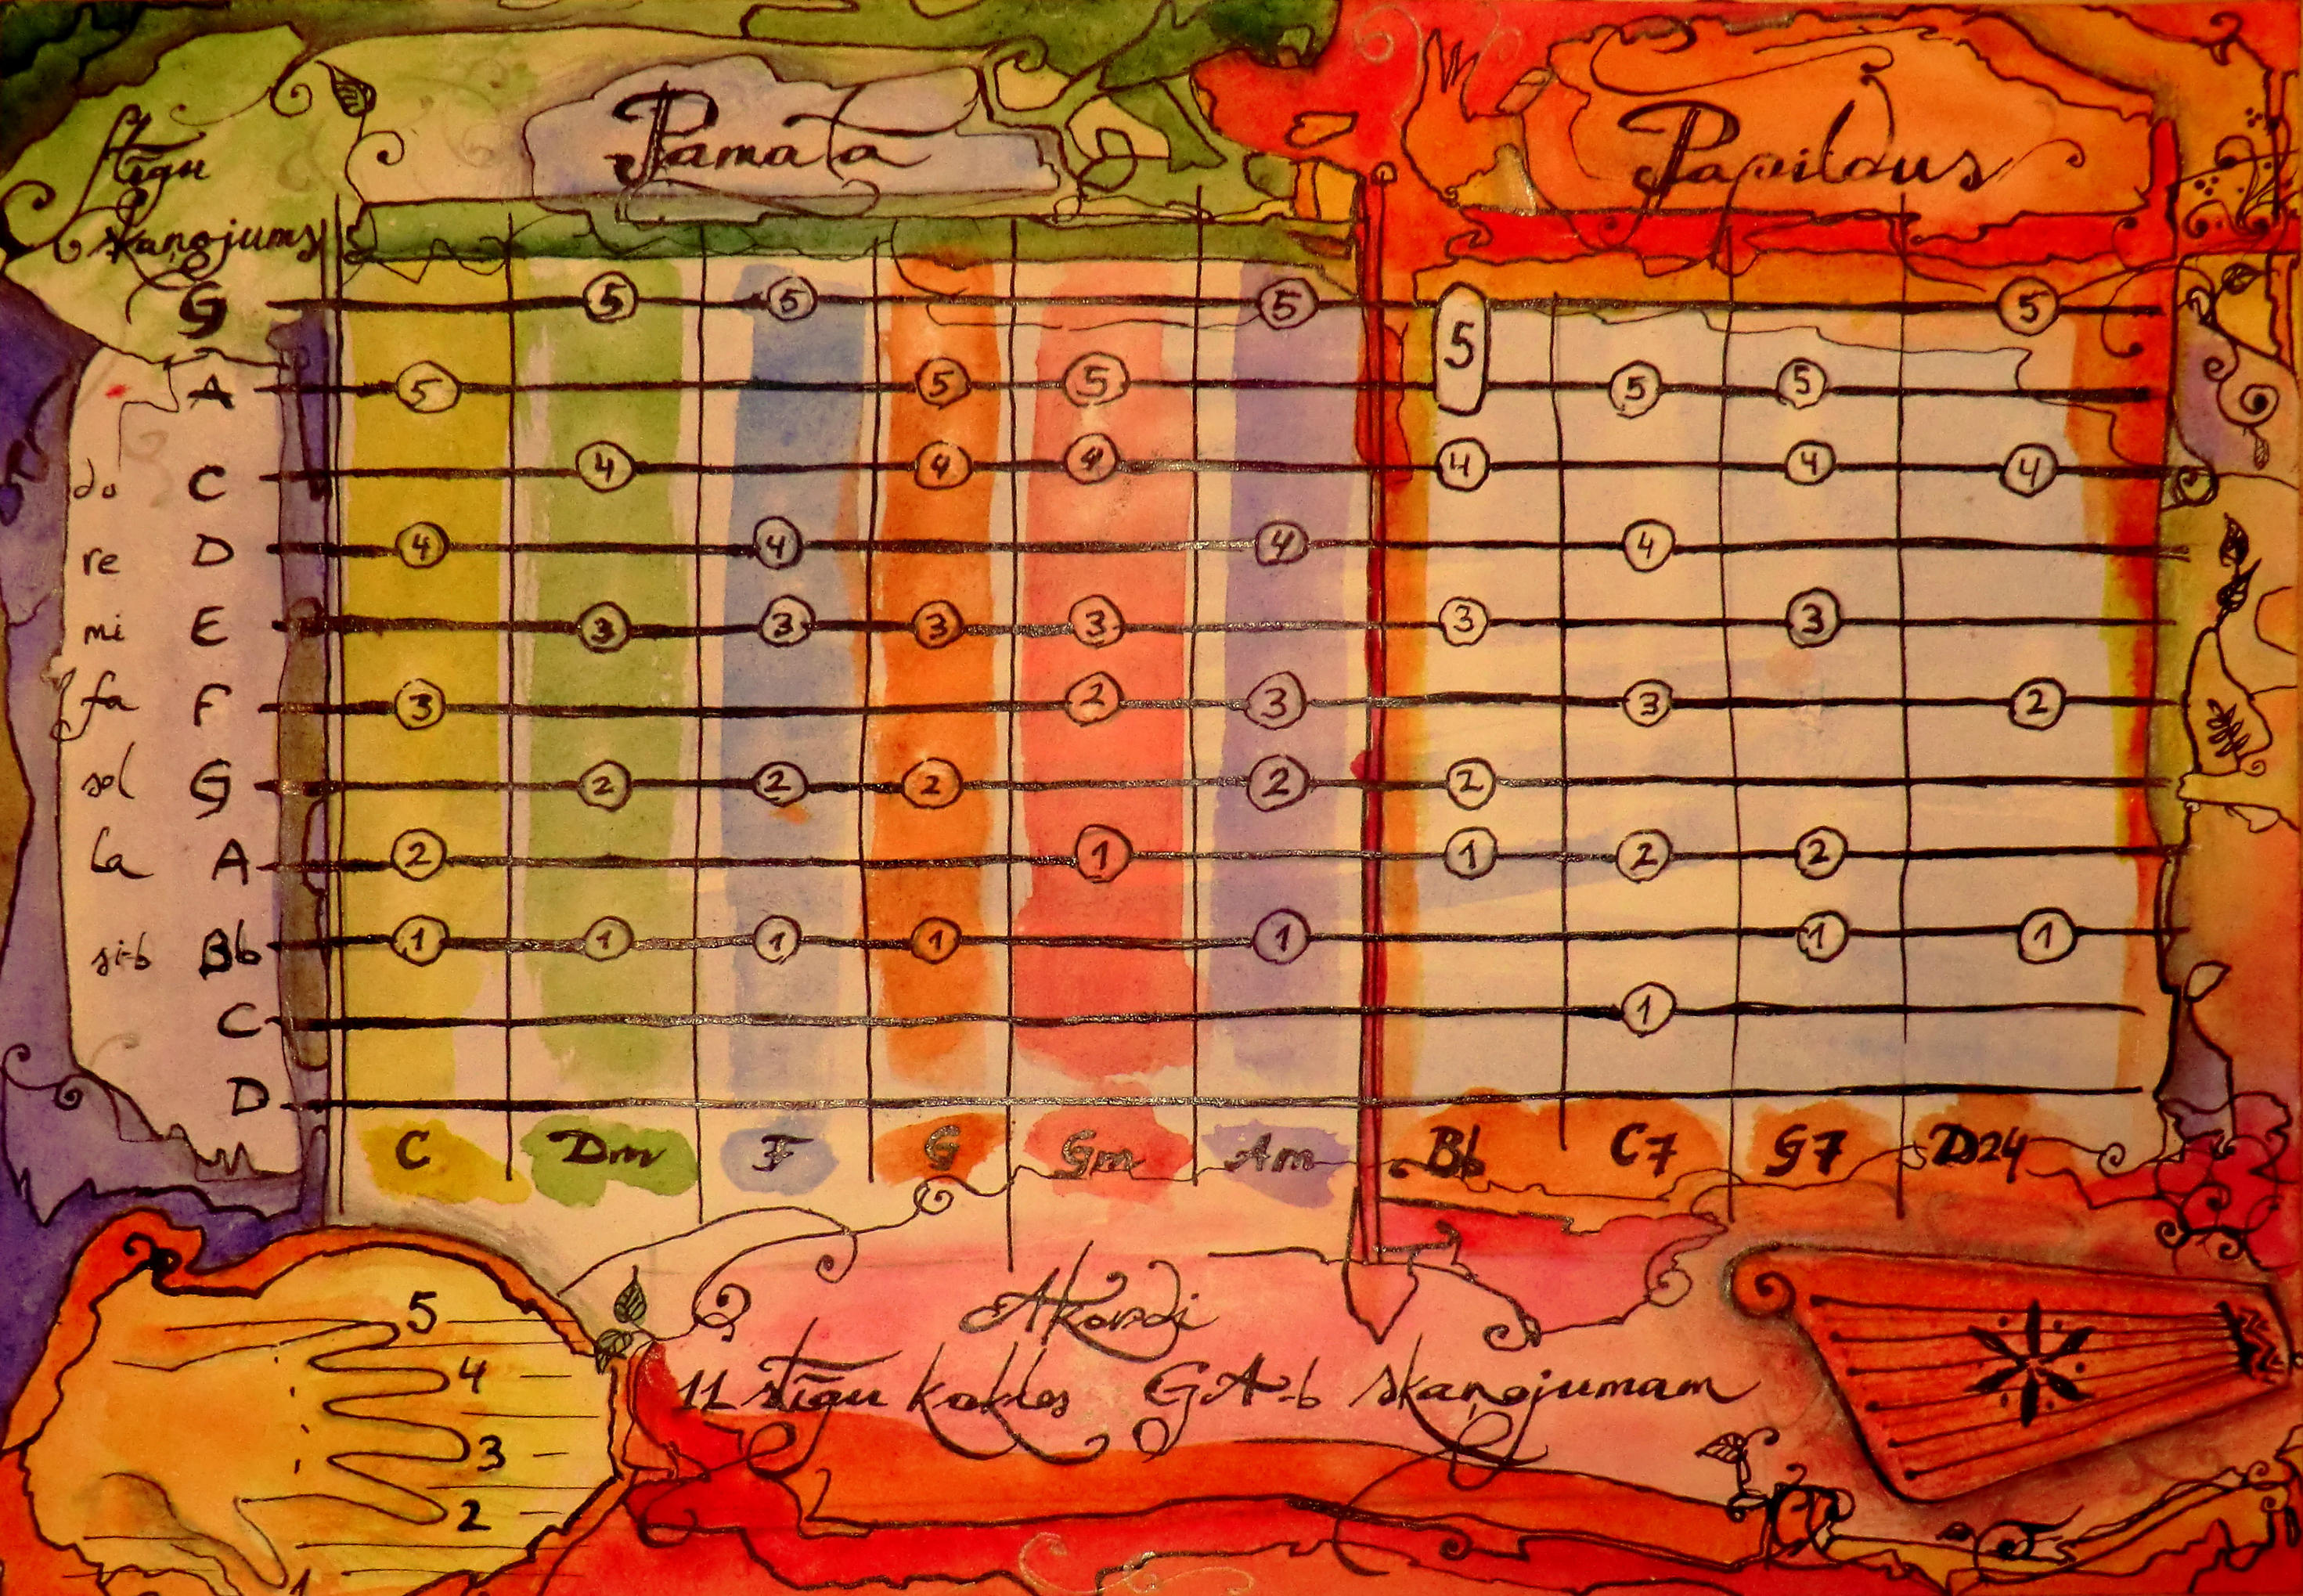 Stīgu
skaņojums
Pamata
Papildus
G 5 5 5 5 5
A 5 5 5 5 5
do C 4 4 4 4 4 4
re D 4 4 4 4
mi E 3 3 3 3 3 3
fa F 3 2 3 3 2
sol G 2 2 2 2 2
la A 2 1 1 2 2
si-b Bb 1 1 1 1 1 1 1
C 1
D
C Dm F G Gm Am Bb C7 G7 D24
Akordi
11 stīgu kokles GA-b skaņojumam
5
4
3
2
1